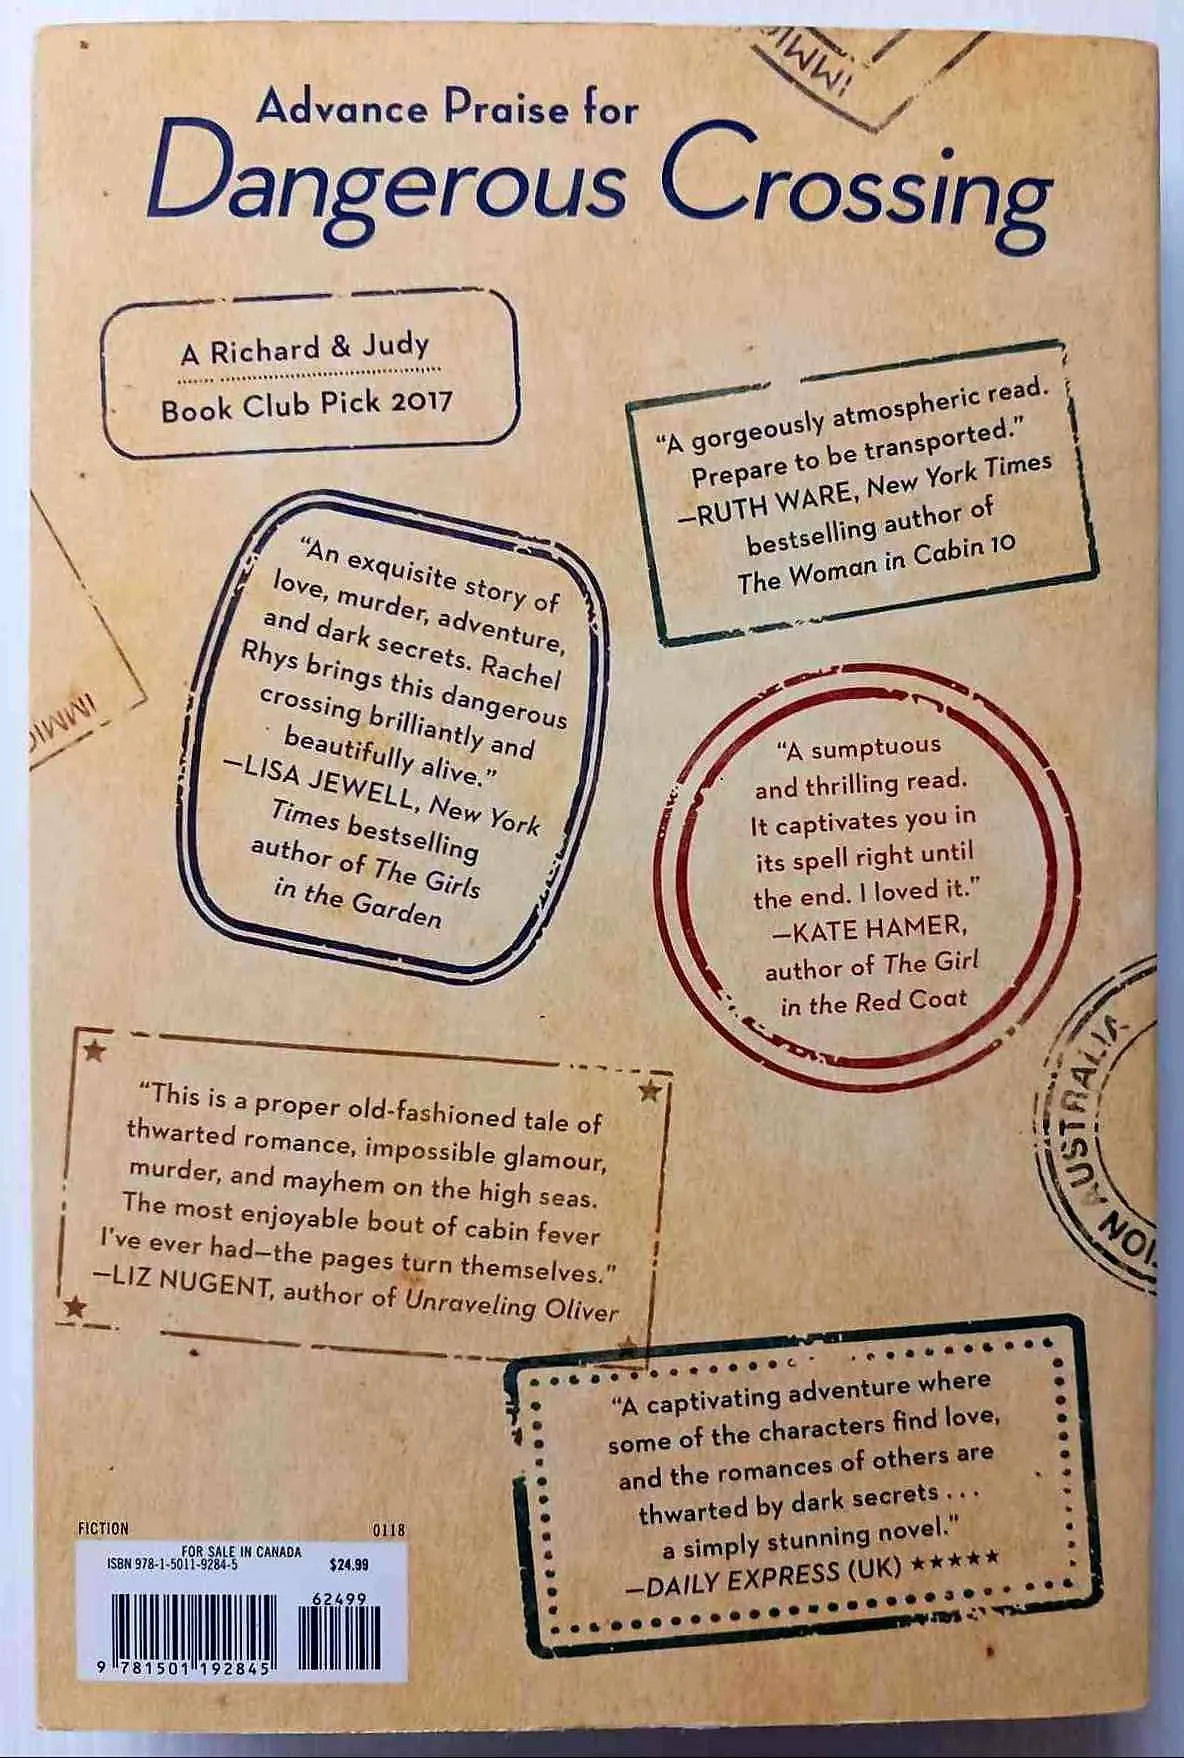 IMMIG
Advance Praise for
Dangerous Crossing
A Richard & Judy
Book Club Pick 2017
“A gorgeously atmospheric read.
Prepare to be transported.”
—RUTH WARE, New York Times
bestselling author of
The Woman in Cabin 10
“An exquisite story of
love, murder, adventure,
and dark secrets. Rachel
Rhys brings this dangerous
crossing brilliantly and
beautifully alive.”
—LISA JEWELL, New York
Times bestselling
author of The Girls
in the Garden
IMMIG
“A sumptuous
and thrilling read.
It captivates you in
its spell right until
the end. I loved it.”
—KATE HAMER,
author of The Girl
in the Red Coat
AUSTRALIA
TION
“This is a proper old-fashioned tale of
thwarted romance, impossible glamour,
murder, and mayhem on the high seas.
The most enjoyable bout of cabin fever
I’ve ever had—the pages turn themselves.”
—LIZ NUGENT, author of Unraveling Oliver
“A captivating adventure where
some of the characters find love,
and the romances of others are
thwarted by dark secrets . . .
a simply stunning novel.”
—DAILY EXPRESS (UK) ★★★★★
FICTION 0118
FOR SALE IN CANADA
ISBN 978-1-5011-9284-5 $24.99
62499
9 781501 192845